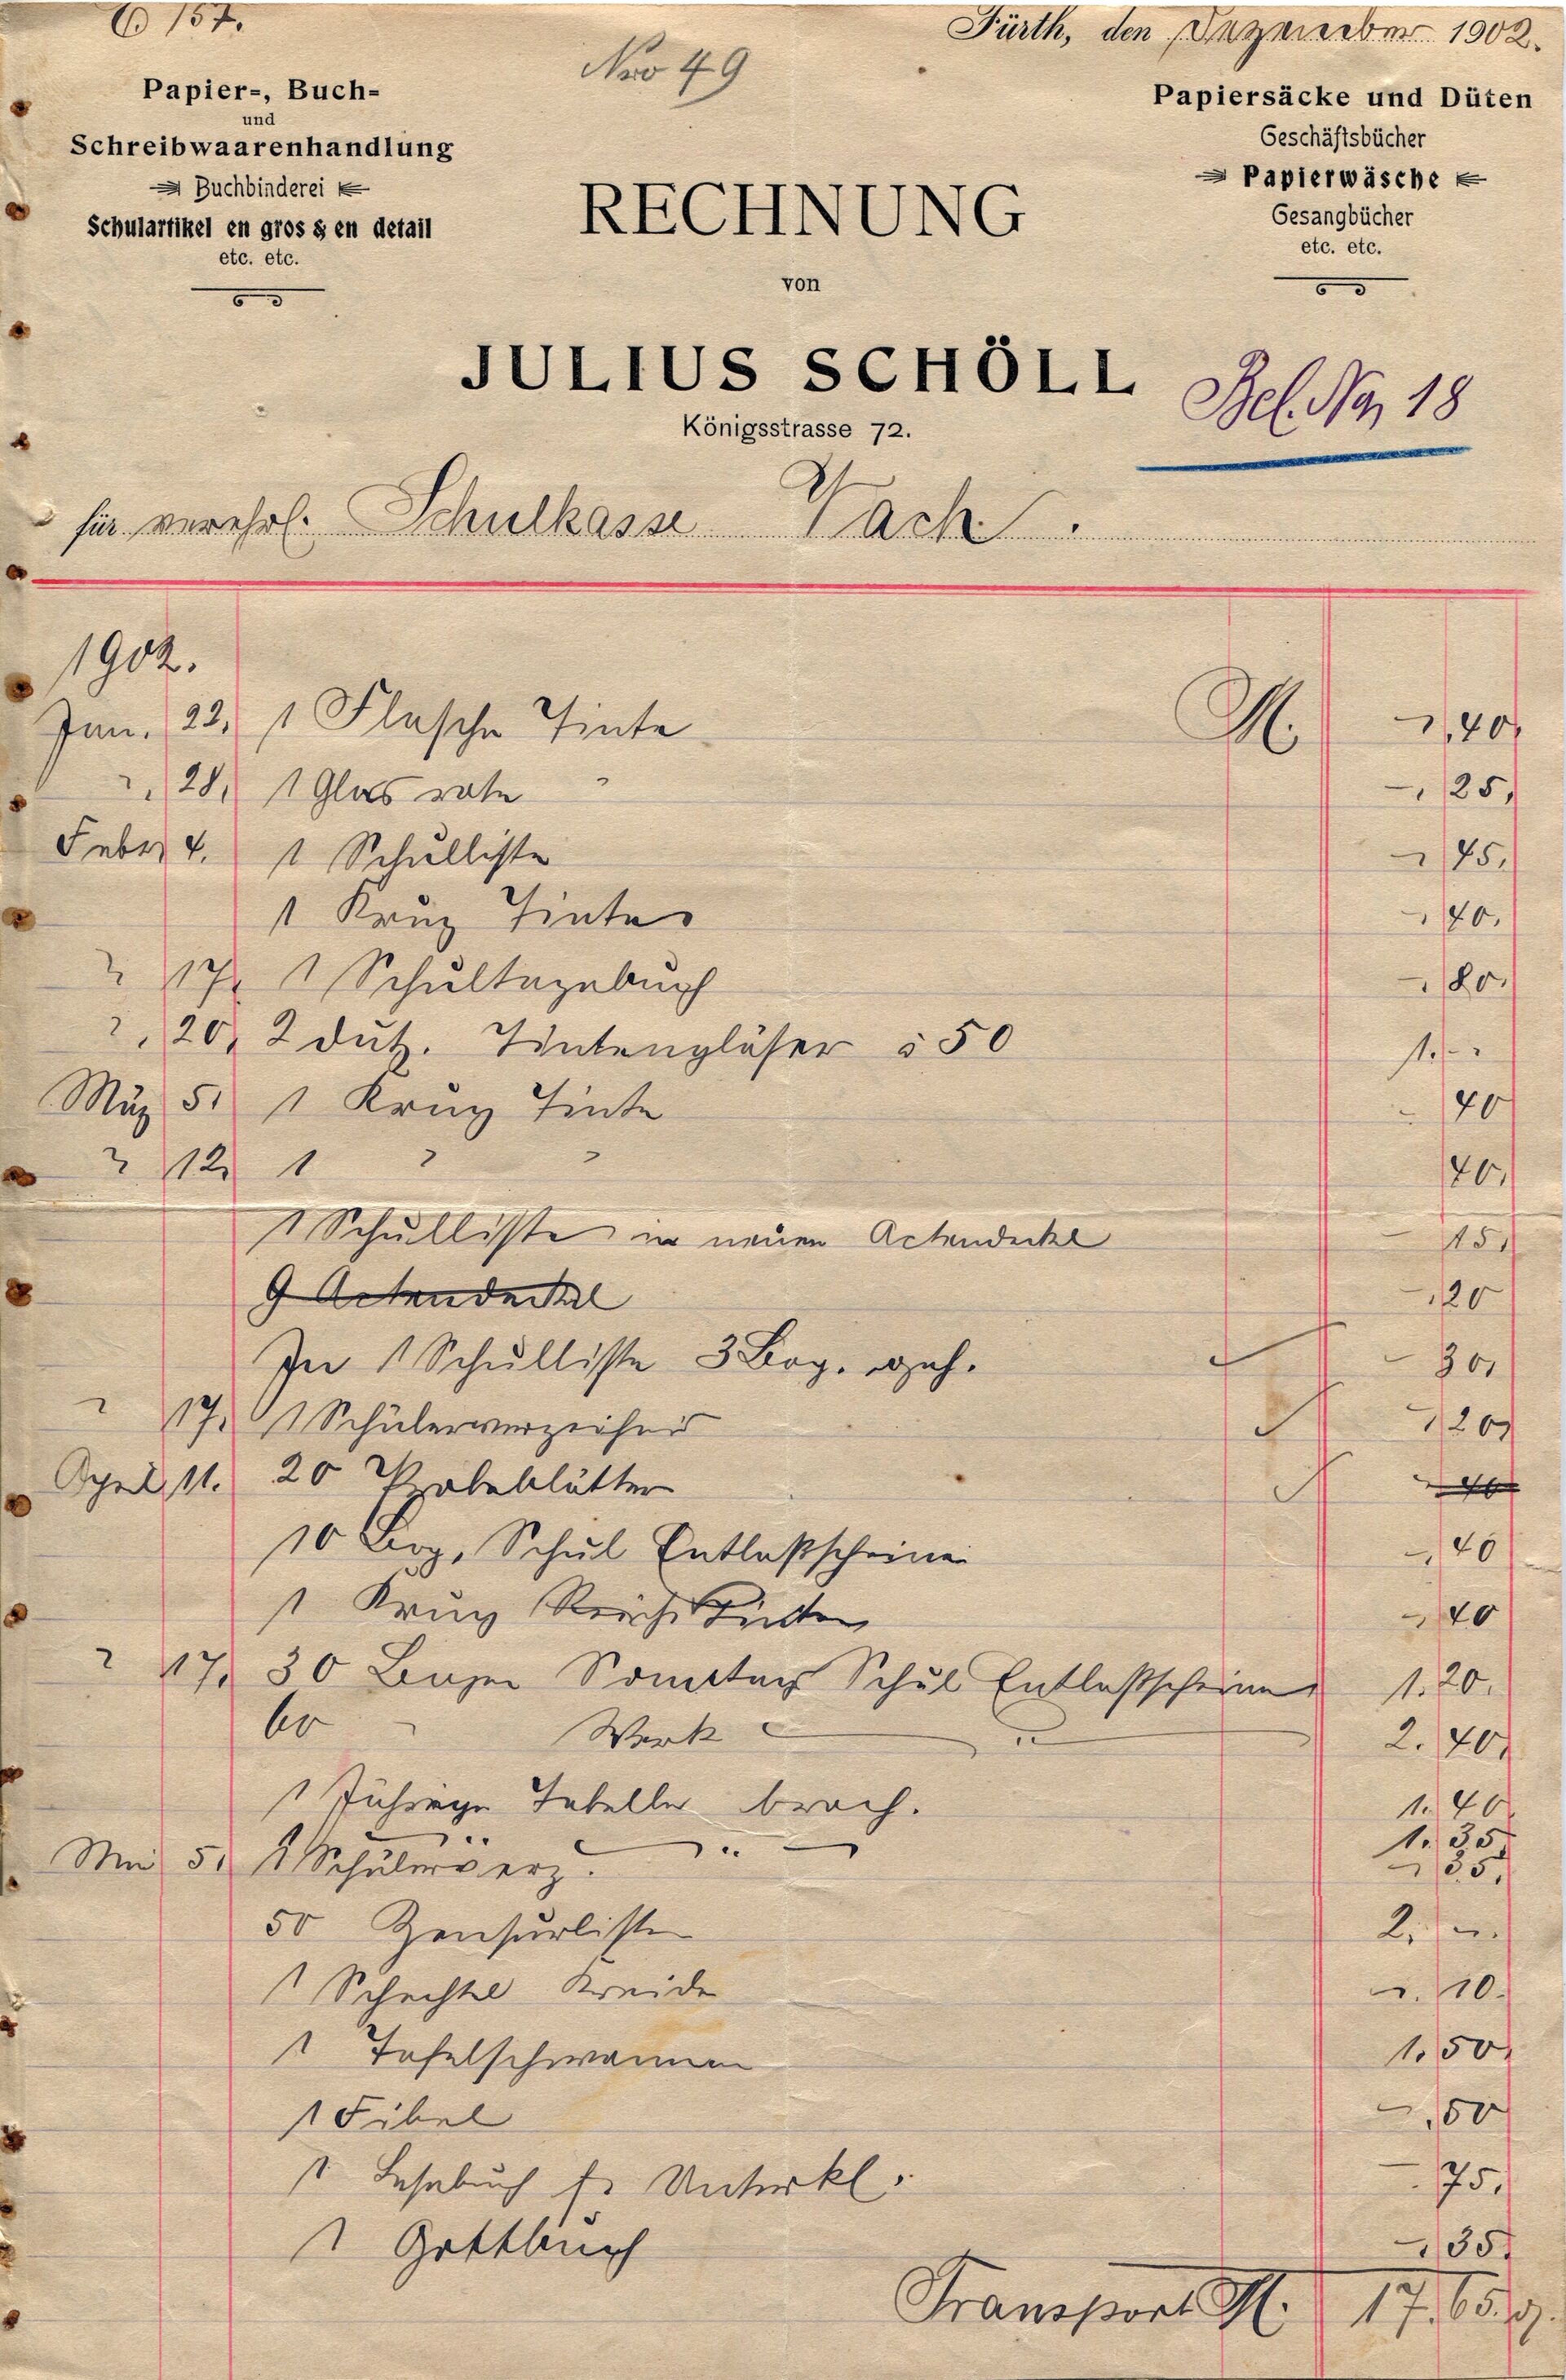 157.
Nro 49
Fürth, den Dezember 1902.
Papier-, Buch-
und
Schreibwaarenhandlung
Buchbinderei
Schulartikel en gros & en detail
etc. etc.
Papiersäcke und Düten
Geschäftsbücher
Papierwäsche
Gesangbücher
etc. etc.
RECHNUNG
von
JULIUS SCHÖLL
Königsstrasse 72.
Bel. No 18
für verehrl. Schulkasse Vach.
1902.
Jan. 22, 1 Flasche Tinte M. -,40,
" 28, 1 Glas rote " -,25,
Febr 4. 1 Schulliste -,45,
1 Krug Tinte -,40,
" 17, 1 Schultagebuch -,80,
" 20, 2 dutz. Tintengläser à 50 1.-
März 5, 1 Krug Tinte -40
" 12, 1 " " 40,
1 Schulliste in neuen Actendeckel -15,
9 Actendeckel -,20
In 1 Schulliste 3 Bog. geh. -30,
" 17, 1 Schülerverzeichnis 1,20,
April 11. 20 Probeblätter
10 Bog. Schul Entlaßscheine -,40
1 Krug Tinte -,40
" 17, 30 Bogen Sonntags Schul Entlaßscheine 1.20.
60 " Werk " 2.40,
1 Jährige Tabelle broch. 1.40
1.35,
Mai 5, 1 Schülerverz. " -,35,
50 Zensurliste 2,-
1 Schachtel Kreide -.10.
1 Tafelschwamm 1,50,
1 Fibel -,50
1 Lesebuch f. Unterkl. -75,
1 -,35,
Transport M. 17.65.